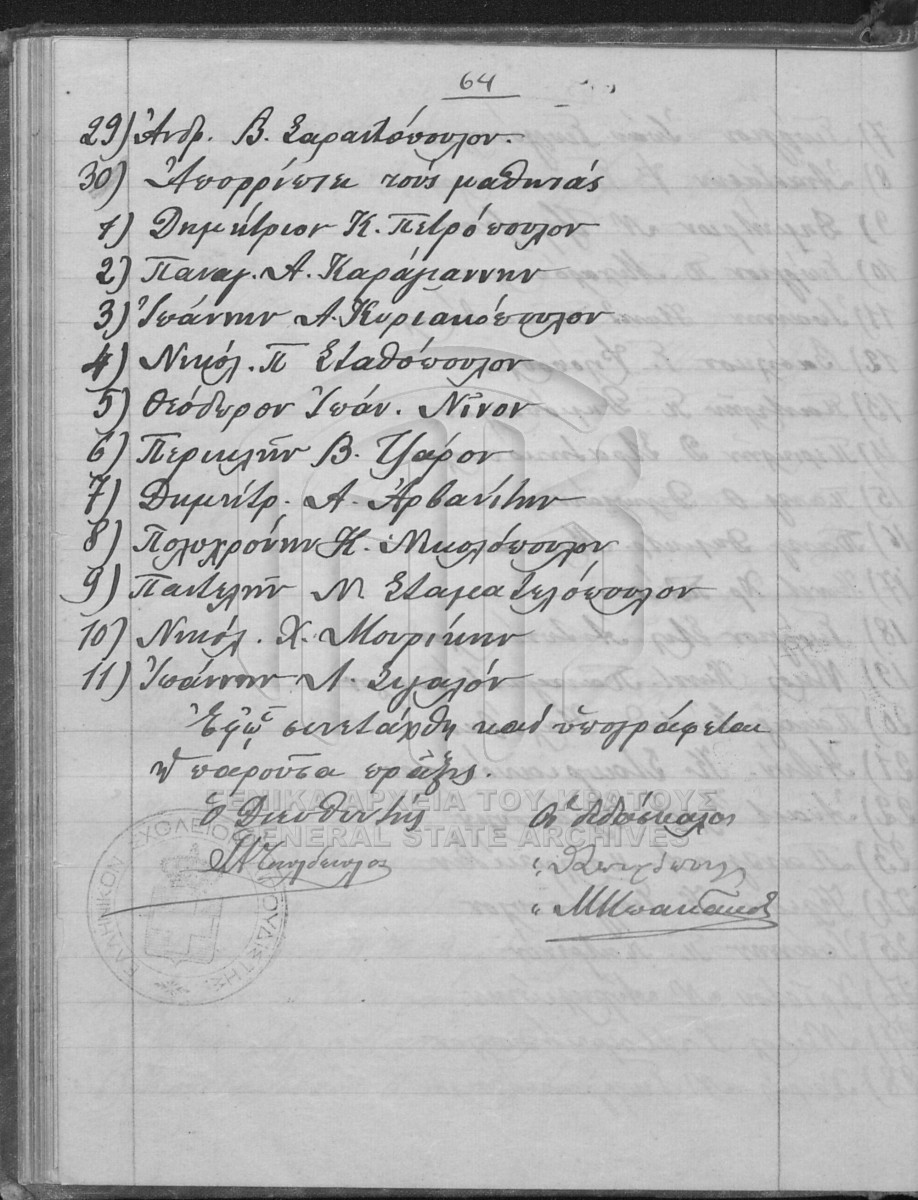 64
29) Ἀνδρ. Β. Σαραντόπουλον.
30) Ἀπορρίπτει τούς μαθητάς
1) Δημήτριον Κ. Πετρόπουλον
2) Παναγ. Α. Καράγιαννην
3) Ἰωάννην Α. Κυριακόπουλον
4) Νικόλ. Π Σταθόπουλον
5) Θεόδωρον Ἰωάν. Νῖνον
6) Περικλῆν Β. Τζάρον
7) Δημήτρ. Α. Ἀρβανίτην
8) Πολυχρόνην Κ. Νικολόπουλον
9) Παντελῆν Ν. Σταματελόπουλον
10) Νικόλ. Χ. Μουρίκην
11) Ἰωάννην Λ. Σιγαλόν
Ἐφ' ᾧ συνετάχθη καί ὑπογράφεται
ἡ παροῦσα πρᾶξις.
Ὁ Διευθυντής Οἱ διδάσκαλοι
ΓΕΝΙΚΑ ΑΡΧΕΙΑ ΤΟΥ ΚΡΑΤΟΥΣ
GENERAL STATE ARCHIVES
ΕΛΛΗΝΙΚΟΝ ΣΧΟΛΕΙΟΝ